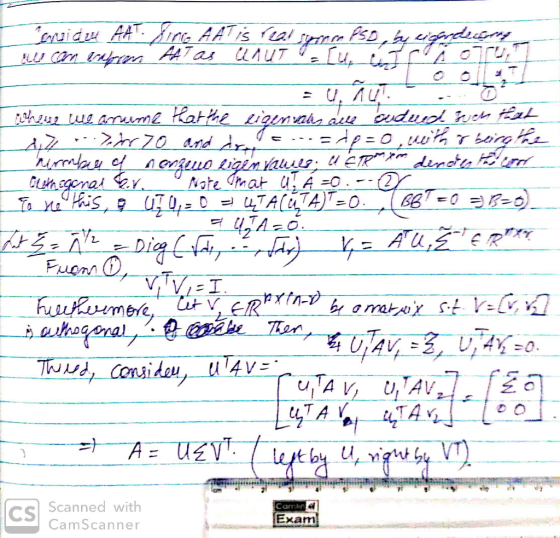 Consider AAᵀ. Since AAᵀ is real symm PSD, by eigendecomp
we can express AAᵀ as UΛUᵀ = [U₁ U₂] [Λ̃ 0; 0 0] [U₁ᵀ; U₂ᵀ]
= U₁ Λ̃ U₁ᵀ. ---- ①
where we assume that the eigenvals are ordered such that
λ₁ ≥ ... ≥ λr > 0 and λr+1 = ... = λp = 0, with r being the
number of nonzero eigenvalues; U ∈ ℝᵐˣᵐ denotes the corr
orthogonal e.v. Note that U₂ᵀA = 0. -- ②
To see this, U₂ᵀU₁ = 0 ⇒ U₂ᵀA(U₂ᵀA)ᵀ = 0. (BBᵀ = 0 ⇒ B = 0)
⇒ U₂ᵀA = 0.
Let Σ̃ = Λ̃^1/2 = Diag(√λ₁, --, √λr) V₁ = AᵀU₁Σ̃⁻¹ ∈ ℝⁿˣʳ
From ①, V₁ᵀV₁ = I.
Furthermore, let V₂ ∈ ℝⁿˣ⁽ⁿ⁻ʳ⁾ be a matrix s.t. V = [V₁ V₂]
is orthogonal, Then, U₁ᵀAV₁ = Σ̃, U₁ᵀAV₂ = 0.
Thus, consider, UᵀAV =
[U₁ᵀAV₁ U₁ᵀAV₂; U₂ᵀAV₁ U₂ᵀAV₂] = [Σ̃ 0; 0 0]
⇒ A = UΣVᵀ. (left by U, right by Vᵀ).
Camlin
Exam
CS Scanned with
CamScanner